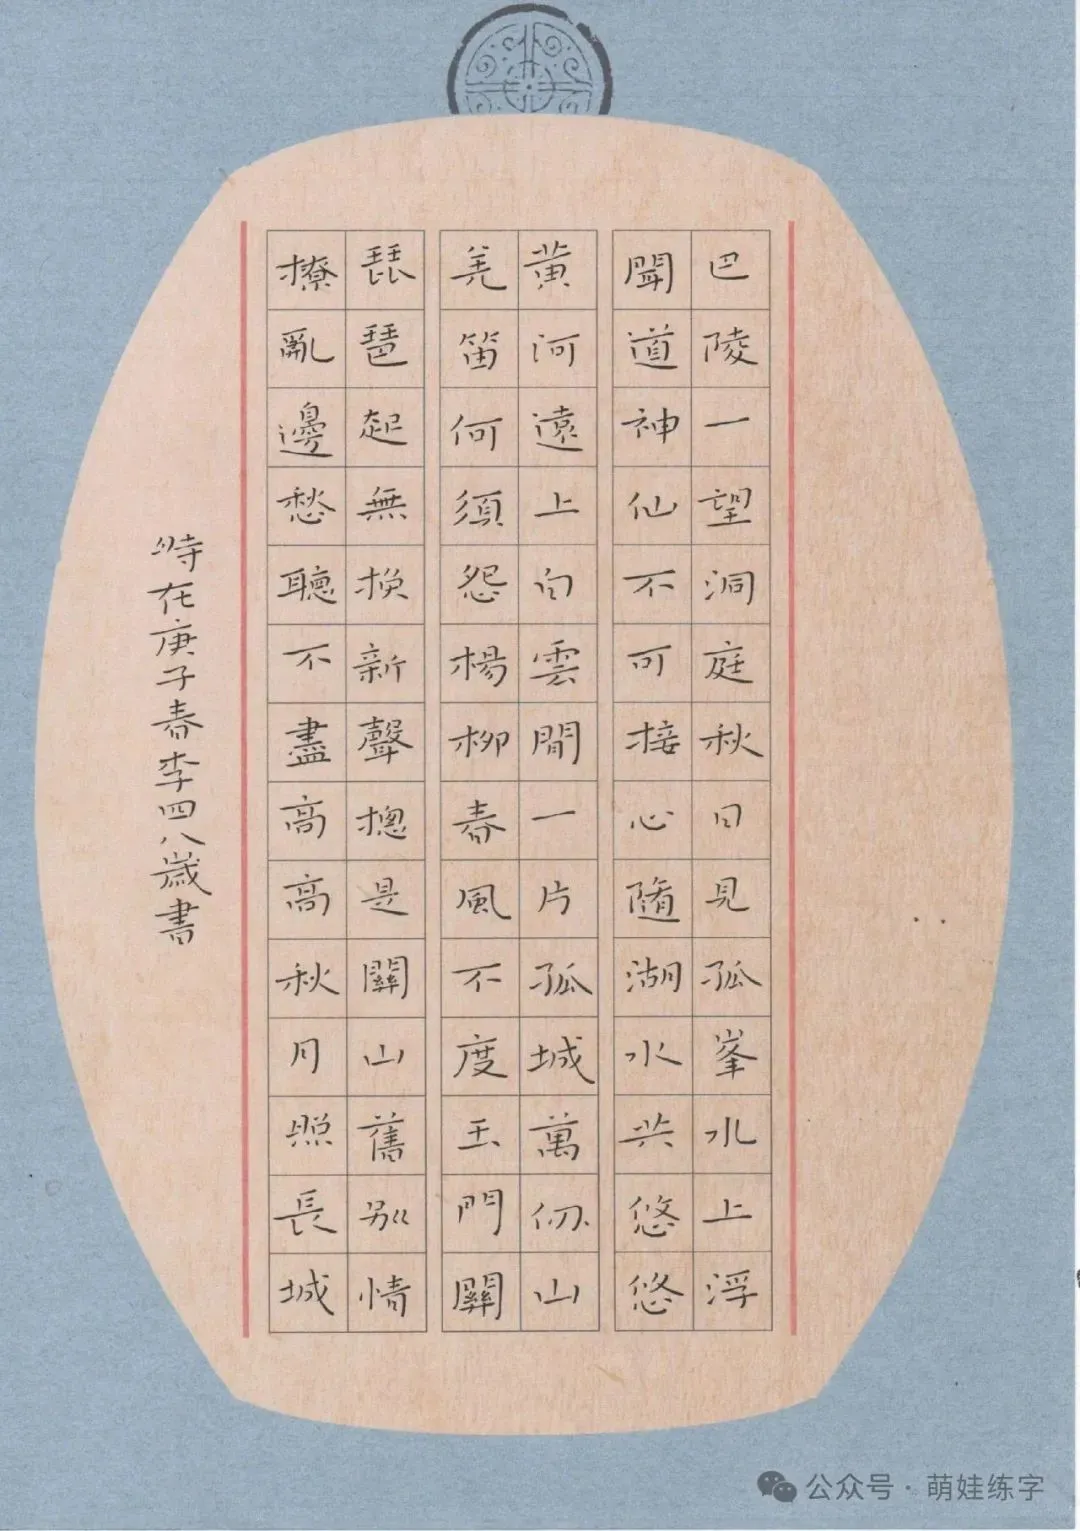 巴陵一望洞庭秋日見孤峯水上浮
聞道神仙不可接心隨湖水共悠悠
黄河遠上白雲間一片孤城萬仞山
羌笛何須怨楊柳春風不度玉門關
琵琶起舞換新聲摠是關山舊別情
撩亂邊愁聽不盡高高秋月照長城
時在庚子春李四八歲書
公众号·萌娃练字